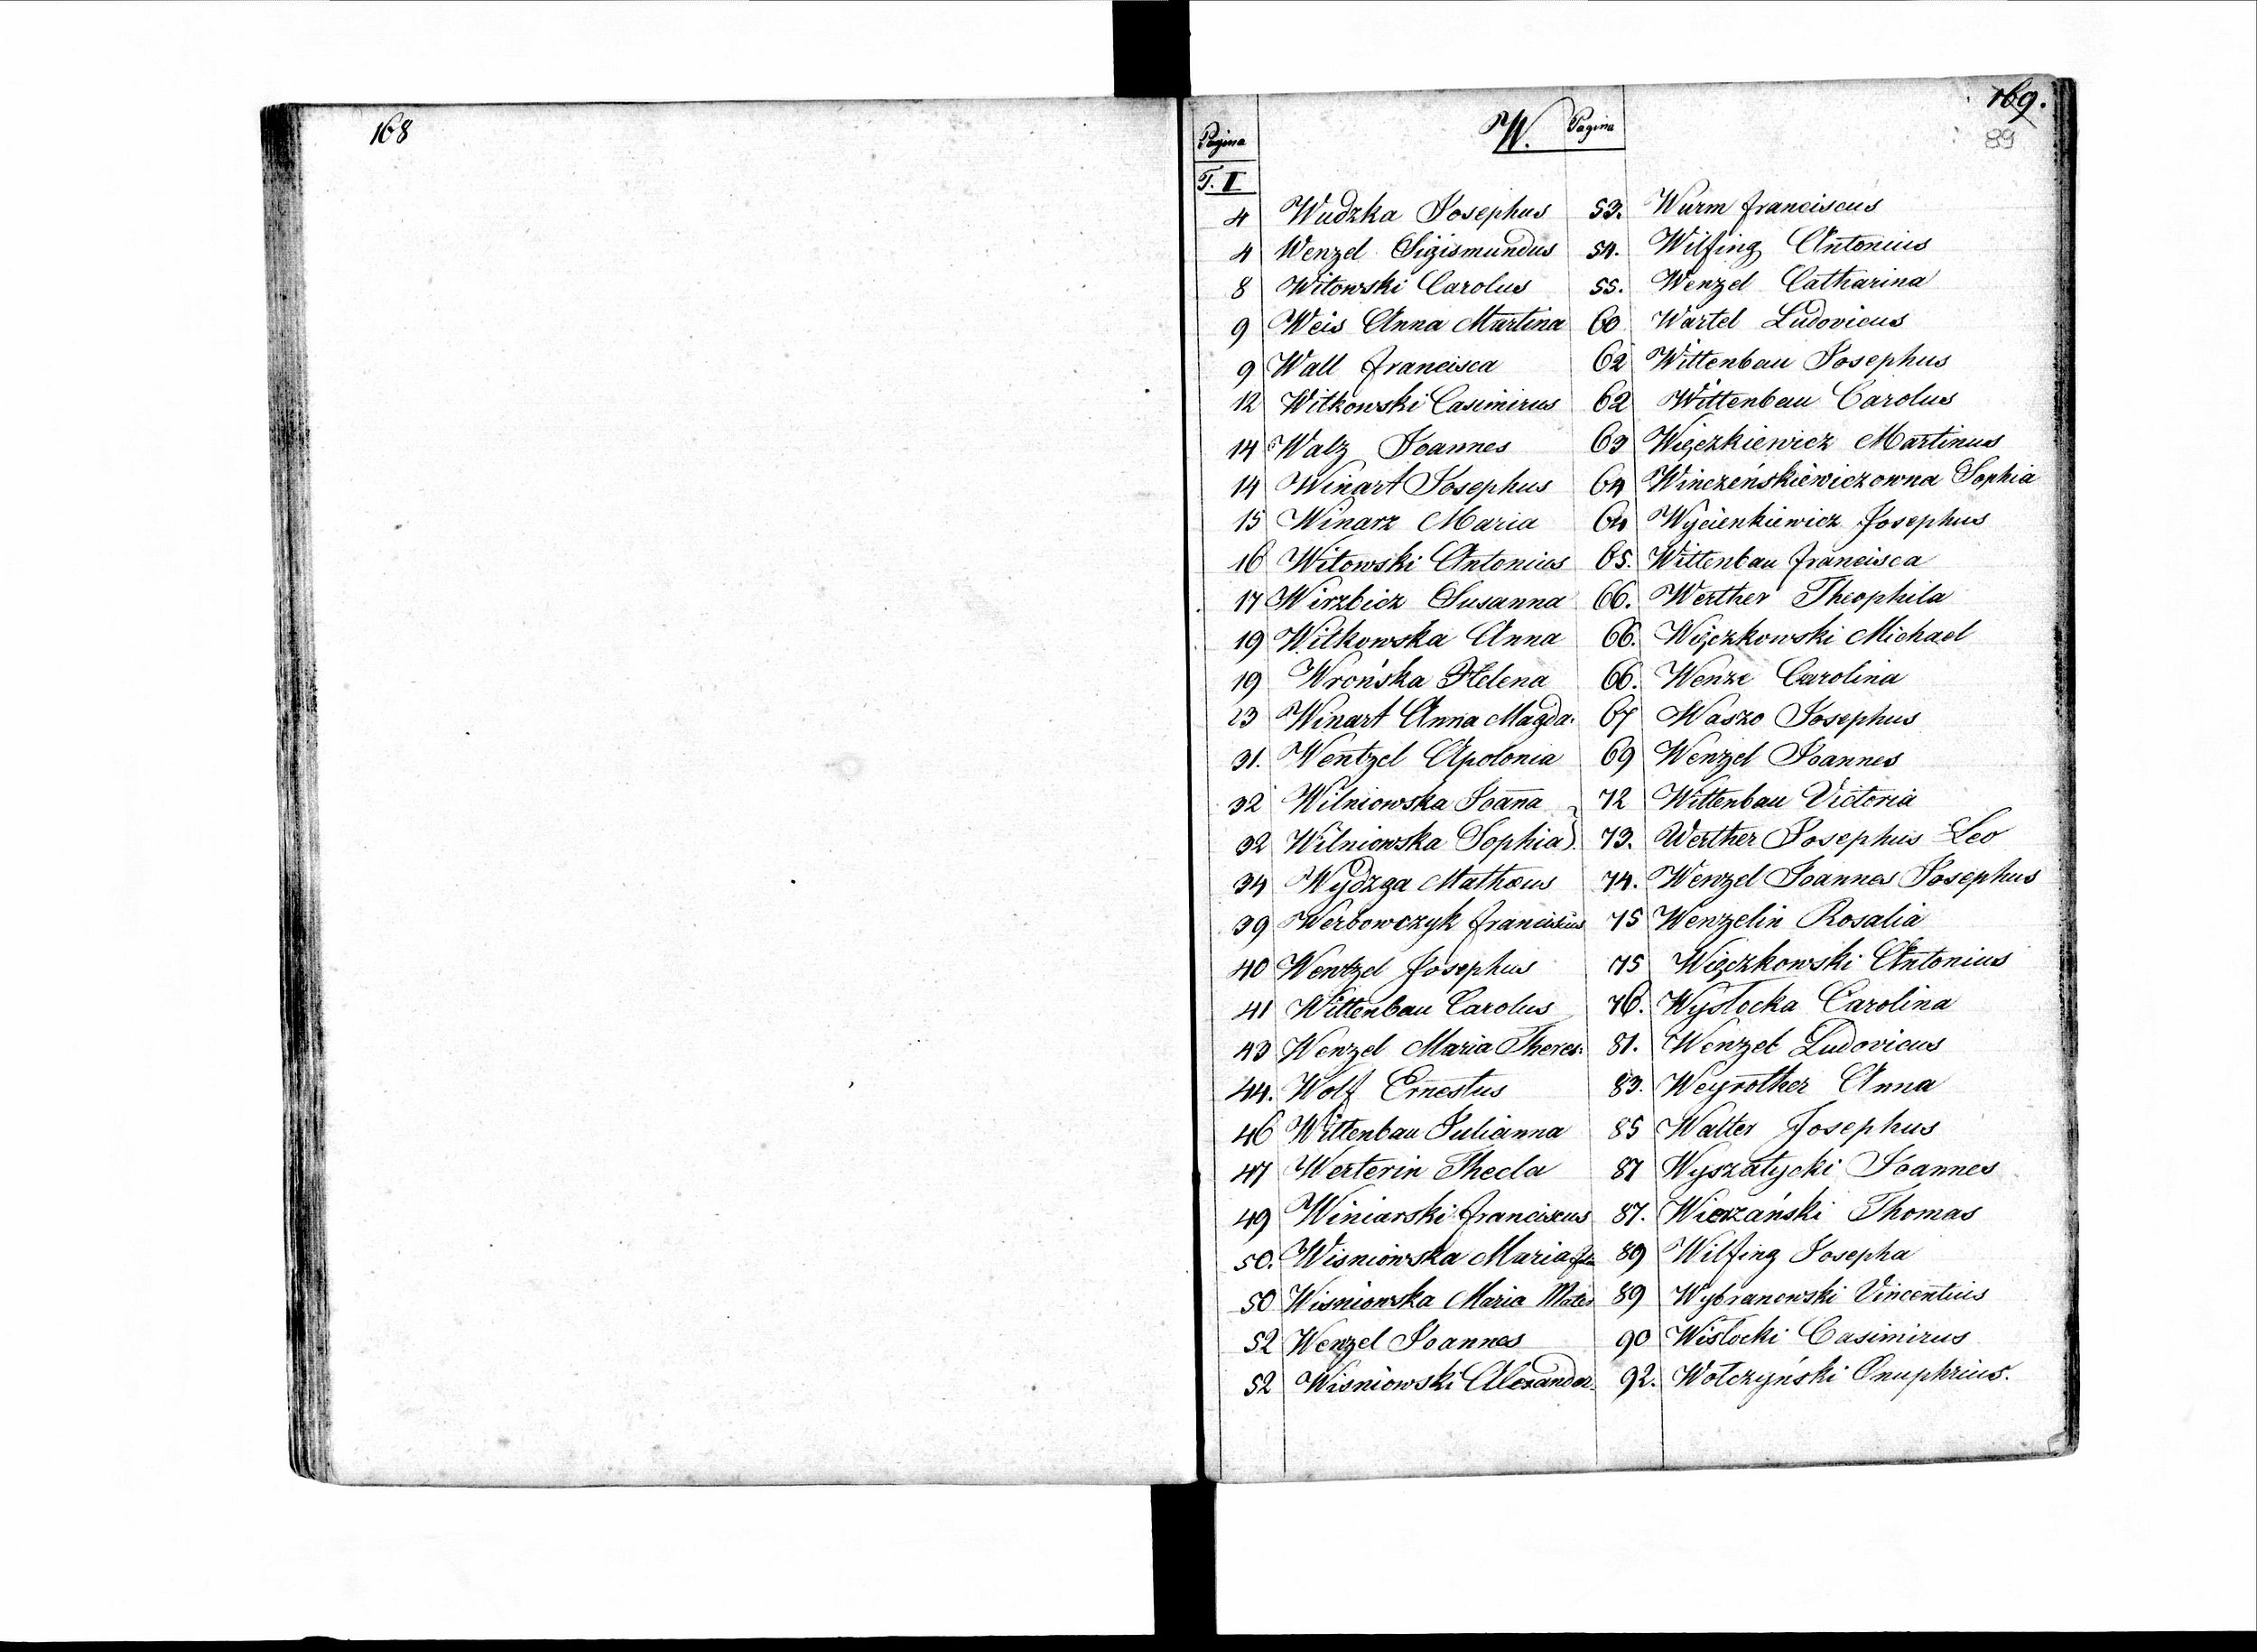 168
169.
89
Pagina W. Pagina
T. I
4 Wudzka Josephus
4 Wenzel Sigismundus
8 Witowski Carolus
9 Weis Anna Martina
9 Wall Francisca
12 Witkowski Casimirus
14 Walz Joannes
14 Winart Josephus
15 Winarz Maria
16 Witowski Antonius
17 Wirzbicz Susanna
19 Witkowska Anna
19 Wrońska Helena
23 Winart Anna Magda.
31. Wentzel Apolonia
32 Wilniowska Joana
32 Wilniowska Sophia
34 Wydzga Mathæus
39 Werbowczyk Franciscus
40 Wentzel Josephus
41 Wittenbau Carolus
43 Wenzel Maria Theres:
44. Wolf Ernestus
46 Wittenbau Julianna
47 Werterin Thecla
49 Winiarski Franciscus
50. Wisniowska Maria
50 Wisniowska Maria Mater
52 Wenzel Joannes
52 Wisniowski Alexander
53. Wurm Franciscus
54. Wilfing Antonius
55. Wenzel Catharina
60 Wartel Ludovicus
62 Wittenbau Josephus
62 Wittenbau Carolus
63 Więczkiewicz Martinus
64 Winczeńskiewiczowna Sophia
64 Wycienkiewicz Josephus
65. Wittenbau Francisca
66. Werther Theophila
66. Więczkowski Michael
66. Wenze Carolina
67 Waszo Josephus
69 Wenzel Joannes
72 Wittenbau Victoria
73. Werther Josephus Leo
74. Wenzel Joannes Josephus
75 Wenzelin Rosalia
75 Więczkowski Antonius
76. Wysłocka Carolina
81. Wenzel Ludovicus
83. Weyrother Anna
85 Walter Josephus
87 Wyszatycki Joannes
87. Wierzański Thomas
89 Wilfing Josepha
89 Wybranowski Vincentius
90 Wisłocki Casimirus
92. Wołczyński Onuphrius.